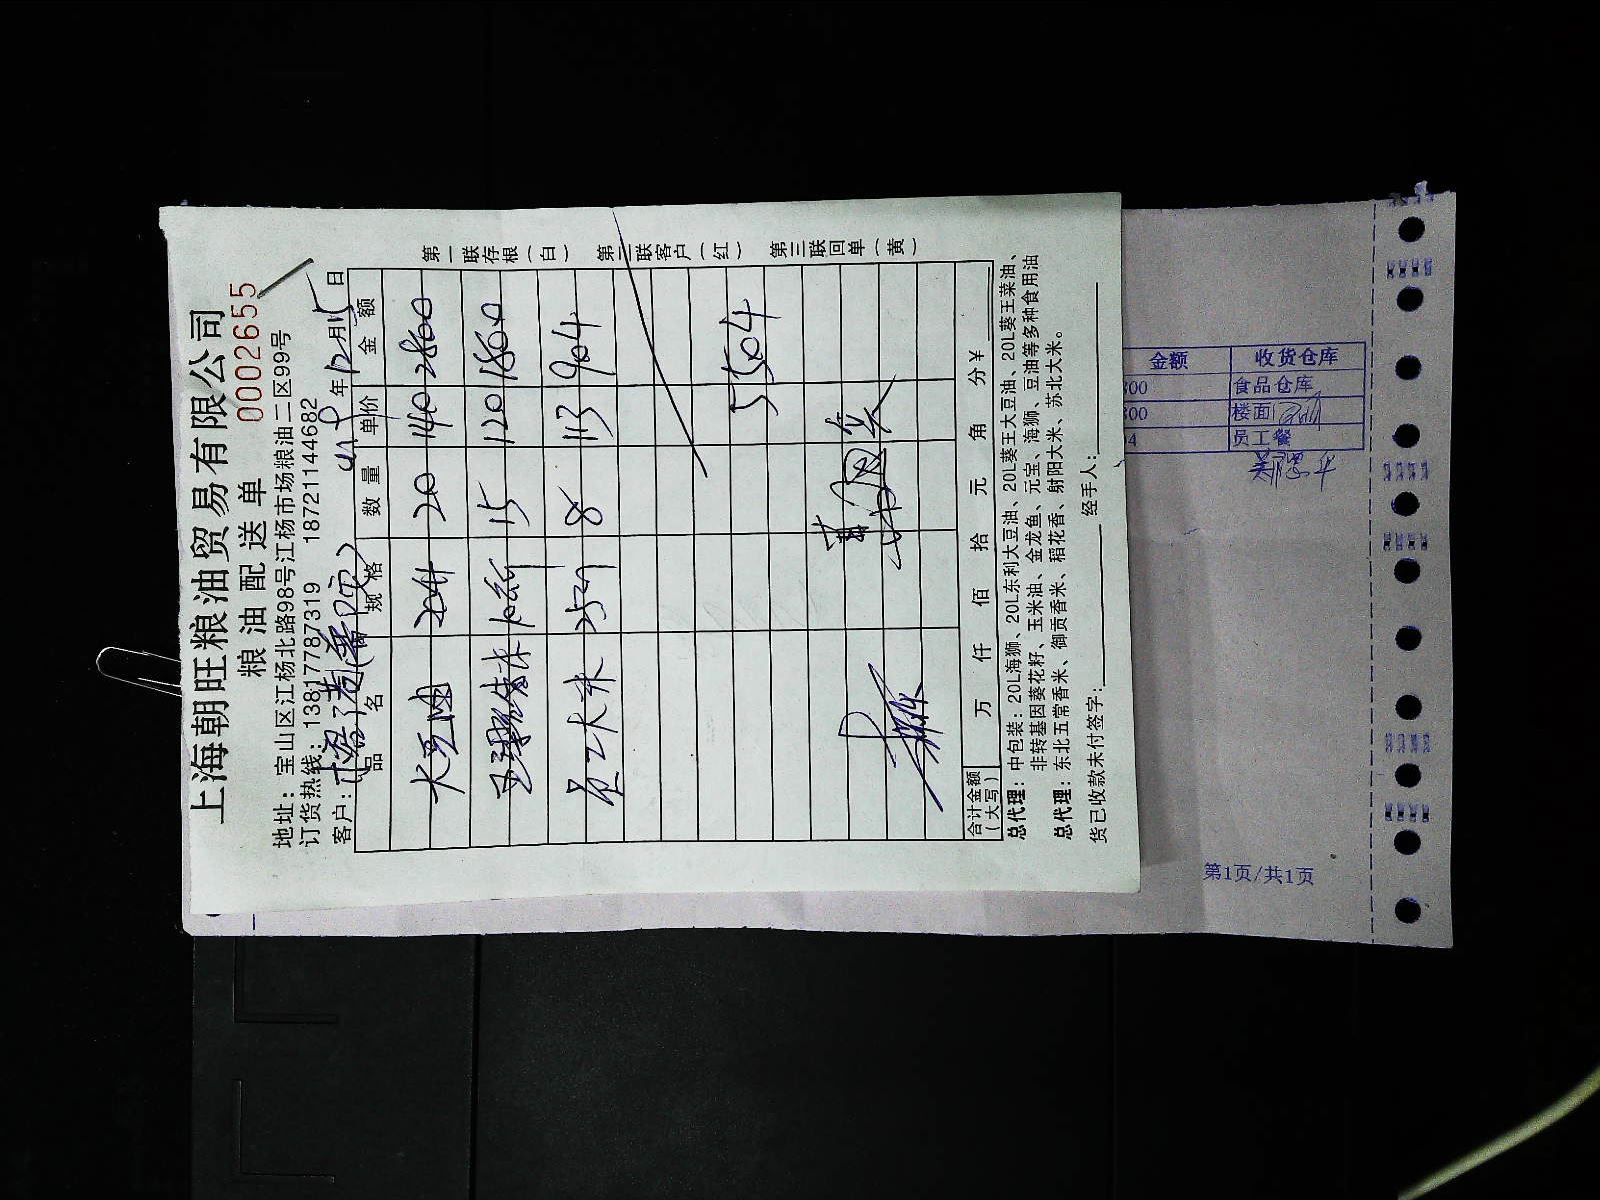 上海朝旺粮油贸易有限公司
粮油配送单 0002655
地址：宝山区江杨北路98号江杨市场粮油二区99号
订货热线：13817787319 18721144682
客户： 年12月15日
品名 规格 数量 单价 金额
大豆油 20升 20 140 2800
15 120 1800
员工大米 25 8 113 904
5504
合计金额（大写） 万 仟 佰 拾 元 角 分￥
总代理：中包装：20L海狮、20L东利大豆油、20L葵王大豆油、20L葵王菜油、
非转基因葵花籽、玉米油、金龙鱼、元宝、海狮、豆油等多种食用油
总代理：东北五常香米、御贡香米、稻花香、射阳大米、苏北大米。
货已收款未付签字： 经手人：
第一联存根（白） 第二联客户（红） 第三联回单（黄）
金额 收货仓库
00 食品仓库
00 楼面
4 员工餐
第1页/共1页